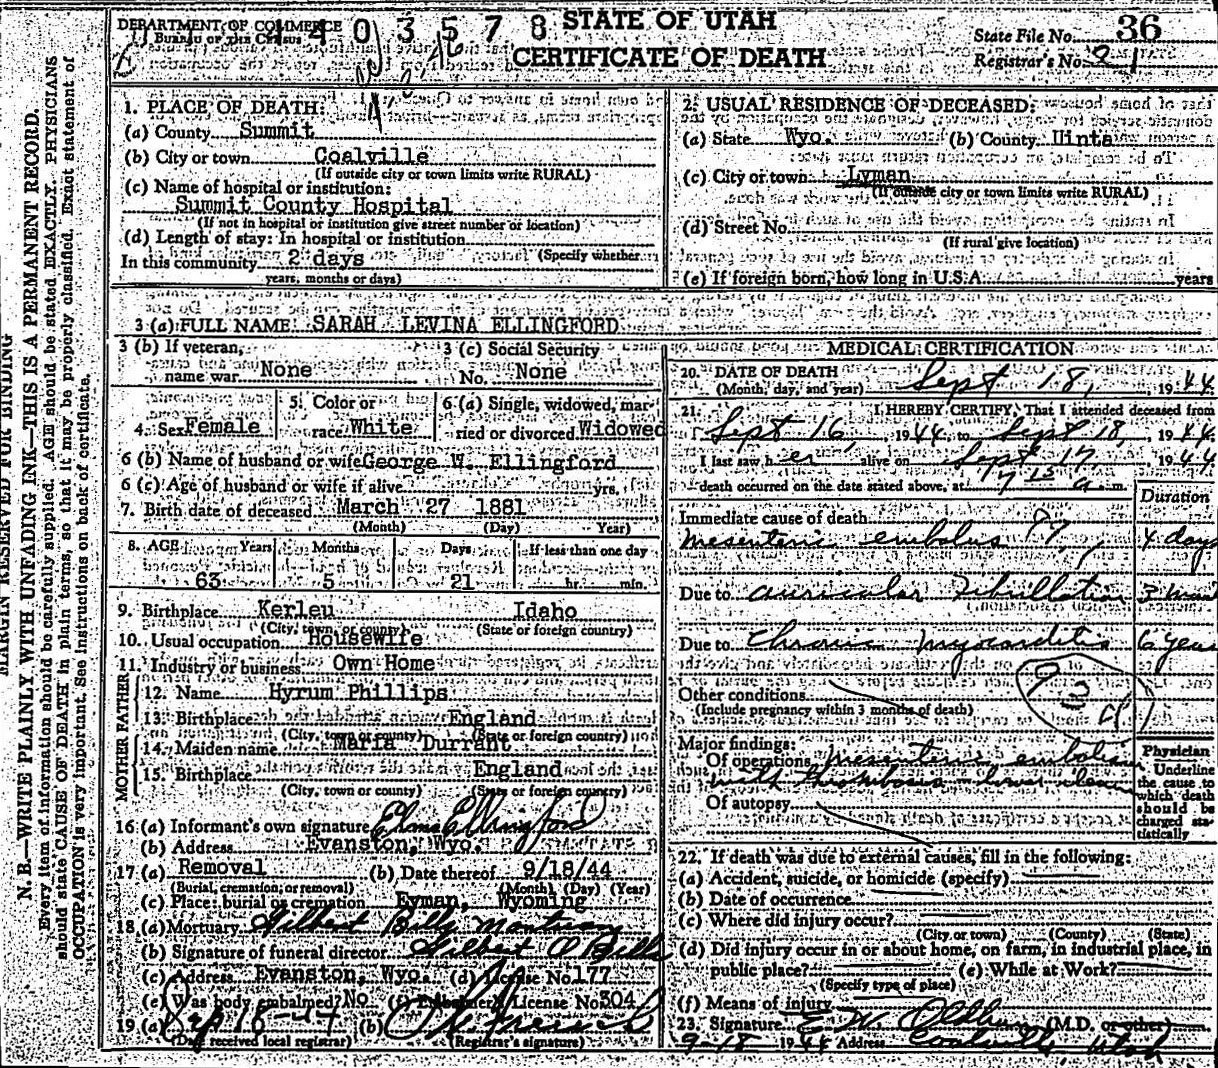 DEPARTMENT OF COMMERCE
BUREAU OF THE CENSUS
4 4 0 3 5 7 8
STATE OF UTAH
CERTIFICATE OF DEATH
State File No. 36
Registrar's No. 21
MARGIN RESERVED FOR BINDING
N. B.—WRITE PLAINLY WITH UNFADING INK—THIS IS A PERMANENT RECORD.
Every item of information should be carefully supplied. AGE should be stated EXACTLY. PHYSICIANS
should state CAUSE OF DEATH in plain terms, so that it may be properly classified. Exact statement of
OCCUPATION is very important. See instructions on back of certificate.
1. PLACE OF DEATH:
(a) County Summit
(b) City or town Coalville
(If outside city or town limits write RURAL)
(c) Name of hospital or institution:
Summit County Hospital
(If not in hospital or institution give street number or location)
(d) Length of stay: In hospital or institution
(Specify whether
In this community 2 days
years, months or days)
2. USUAL RESIDENCE OF DECEASED:
(a) State Wyo. (b) County Uinta
(c) City or town Lyman
(If outside city or town limits write RURAL)
(d) Street No.
(If rural give location)
(e) If foreign born, how long in U.S.A. years
3 (a) FULL NAME: SARAH LEVINA ELLINGFORD
3 (b) If veteran,
name war None
3 (c) Social Security
No. None
4. Sex Female
5. Color or
race White
6 (a) Single, widowed, mar-
ried or divorced Widowed
6 (b) Name of husband or wife George W. Ellingford
6 (c) Age of husband or wife if alive yrs.
7. Birth date of deceased March 27 1881
(Month) (Day) Year)
8. AGE Years Months Days If less than one day
63 5 21 hr. min.
9. Birthplace Kerleu Idaho
(City, town, or county) (State or foreign country)
10. Usual occupation Housewife
11. Industry or business Own Home
FATHER
12. Name Hyrum Phillips
13. Birthplace England
(City, town or county) (State or foreign country)
MOTHER
14. Maiden name Maria Durrant
15. Birthplace England
(City, town or county) (State or foreign country)
16 (a) Informant's own signature Ellingford
(b) Address Evanston, Wyo.
17 (a) Removal (b) Date thereof 9/18/44
(Burial, cremation, or removal) (Month) (Day) (Year)
(c) Place: burial or cremation Eyman, Wyoming
18 (a) Mortuary Gilbert Bills Mortuary
(b) Signature of funeral director Gilbert O Bills
(c) Address Evanston, Wyo. (d) License No. 177
(e) Was body embalmed? No (f) Embalmer's License No. 304
19 (a) Sep 18-44 (b)
(Date received local registrar) (Registrar's signature)
MEDICAL CERTIFICATION
20. DATE OF DEATH
(Month, day, and year) Sept 18, 1944
21. I HEREBY CERTIFY, That I attended deceased from
Sept 16, 1944, to Sept 18, 1944
I last saw her alive on Sept 17, 1944
death occurred on the date stated above, at 7 15 a. m.
Duration
Immediate cause of death
mesenteric embolus 4 days
Due to auricular Fibrillation 3
Due to Chronic myocarditis 6 years
Other conditions
(Include pregnancy within 3 months of death)
Major findings:
Of operations mesenteric embolism
with thrombosis lower ileum
Of autopsy
Physician
Underline
the cause to
which death
should be
charged sta-
tistically
22. If death was due to external causes, fill in the following:
(a) Accident, suicide, or homicide (specify)
(b) Date of occurrence
(c) Where did injury occur?
(City or town) (County) (State)
(d) Did injury occur in or about home, on farm, in industrial place, in
public place? (e) While at Work?
(Specify type of place)
(f) Means of injury
23. Signature E W (M.D. or other)
9-18 1944 Address Coalville Utah